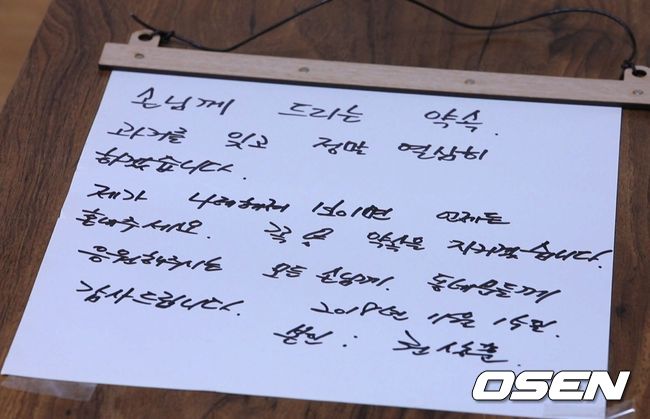 손님께 드리는 약속.
과거를 잊고 정말 열심히
하겠습니다.
제가 나태해져 보이면 언제든
혼내주세요. 꼭 약속을 지키겠습니다.
응원해주시는 모든 손님께. 동네분들께
감사드립니다. 2018년 11월 15일.
본인:
OSEN